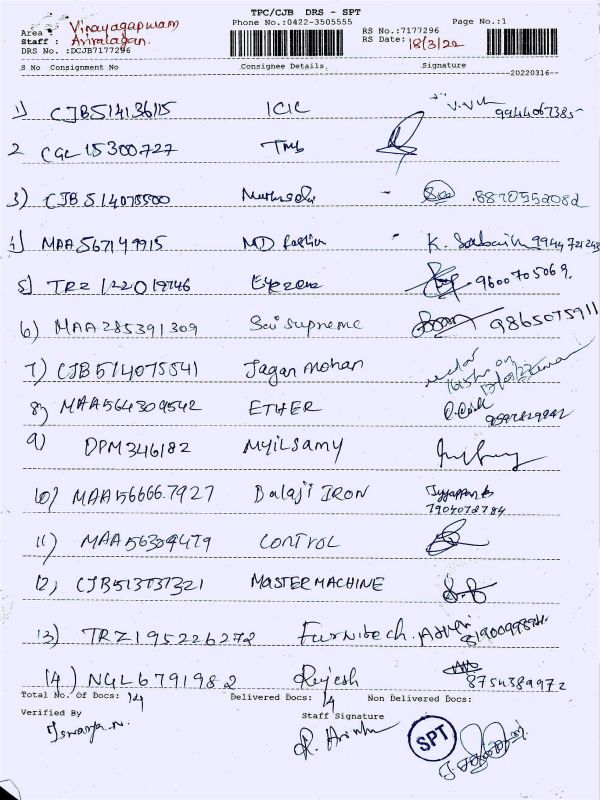 TPC/CJB DRS - SPT
Phone No.:0422-3505555 Page No.:1
Area : Vinayagapuram
Staff : Arivalagan.
DRS No. :DCJB7177296
RS No.:7177296
RS Date: 18/3/22
S No Consignment No Consignee Details Signature
20220316
1) CJB514136115 ICIC V.V 9944067385
2 CGL 15300727 TMB
3) CJB 514075500 8870552082
4) MAA567149915 MD fashion K. 9944721243
5) TRZ 122019746 9600705069.
6) MAA285391309 Sai supreme 9865075911
7) CJB514075541 Jagan mohan
8) MAA564309542 ETHER
9) DPM346182 Myilsamy
10) MAA566667927 Balaji IRON Iyyappan 7904072784
11) MAA56309479 CONTROL
12) CJB513737321 MASTER MACHINE
13) TRZ195226272 Furnitech.
14) NGL6791982 Rajesh 8754389972
Total No. Of Docs: 14 Delivered Docs: 14 Non Delivered Docs:
Verified By Staff Signature
Iswarya.N. SPT